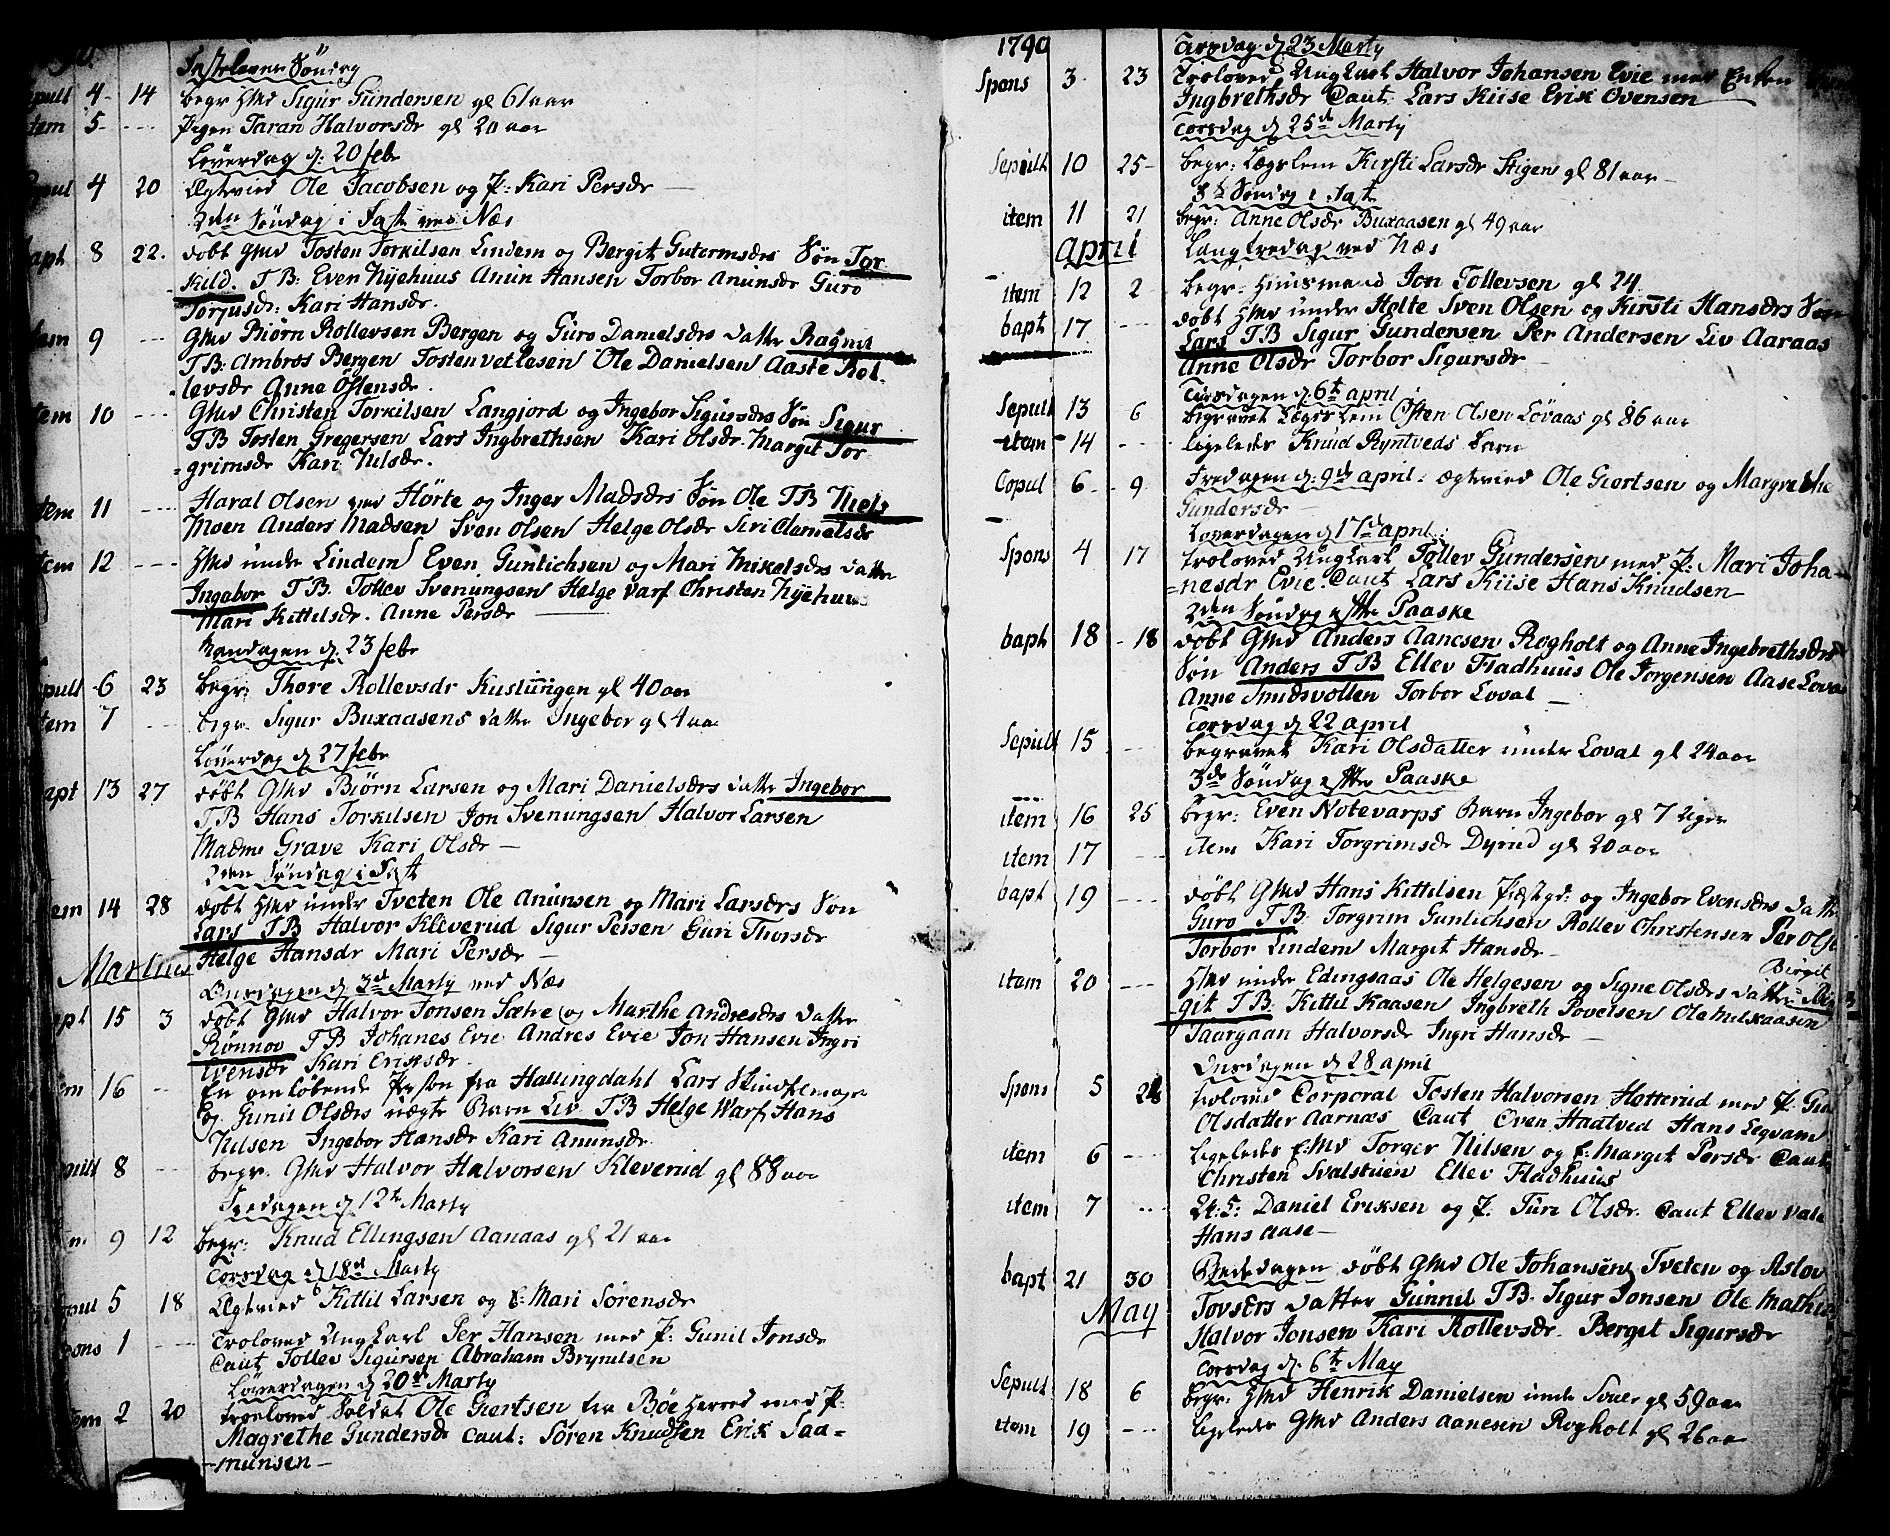 Fastelavns Søndag
4 14 begr Hmd Sigur Gundersen gl 61 aar
5 --- Pigen Taran Halvorsdr gl 20 aar
Løverdag d: 20 febr
4 20 Ægtevied Ole Jacobsen og P: Kari Persdr —
2den Søndag i Faste ved Næs
8 22. døbt Gmd Tosten Torkilsen Lindem og Bergit Gutormsdrs Søn Tor
kild. TB: Even Nyehuus Anun Hansen Torbor Anunsdr Guro
Torjusdr: Kari Hansdr.
9 --- Gmd Biørn Rollevsen Bergen og Guro Danielsdrs datter Ragnil
TB: Ambros Bergen Tosten vetlesen Ole Danielsen Aaste Rol
levsdr Anne Østensdr.
item 10 --- Gmd Christen Torkilsen Langjord og Ingebor Sigursdrs Søn Sigur
TB Tosten Gregersen Lars Ingbrethsen Kari Olsdr. Margit Tor
=grimsdr Kari Nilsdr.
item 11 --- Haral Olsen ved Hørte og Inger Madsdrs Søn Ole TB Niels
Moen Anders Madsen Sven Olsen Helge Olsdr Siri
item 12 --- Hmd under Lindem Even Gunlichsen og Mari Nikelsdrs datter
Ingebor TB. Tollev Sveningsen Helge Varf Christen Nyehuus
Mari Kittilsdr. Anne Persdr
Mandagen d: 23 febr
6 23 begr: Thore Rollevsdr Kuslungen gl 40 aar
item 7 --- begr. Sigur Buxaasens datter Ingebor gl 4 aar
Løverdag d 27 febr
bapt 13 27 døbt Gmd Biørn Larsen og Mari Danielsdrs datter Ingebor
TB Hans Torkilsen Jon Sveningsen Halvor Larsen
Madme Grave Kari Olsdr —
Søndag i Fast
item 14 28 døbt Hmd under Tveten Ole Anunsen og Mari Larsdrs Søn
Lars TB Halvor Kleverud Sigur Persen Guri Thorsdr
Helge Hansdr Mari Persdr —
Martius
Onsdagen d 3de Marty ved Næs
bapt 15 3 døbt Gmd Halvor Jonsen Sætre og Marthe Andresdrs datter
Rønnov TB Johanes Evie Andres Evie Jon Hansen Ingri
Evensdr Kari Eriksdr.
item 16 -- En omløbende Person fra Hallingdahl Lars
og Gunil Olsdrs uægte Barn Liv TB Helge Warf Hans
Nilsen Ingebor Hansdr Kari Anunsdr.
Sepult 8 --- begr. Gmd Halvor Halvorsen Kleverud gl 88 aar
Fredagen d 12te Marty
9 12 begr: Knud Ellingsen Aanaas gl 21 aar
Torsdag d 18de Marty
Copul 5 18 Ægtevied Kittil Larsen og E: Mari Sørensdr
Spons 1 --- Trolovet Ungkarl Per Hansen med P: Gunil Jonsdr
Caut Tollev Sigursen Abraham Brynilsen
Løverdagen d 20de Marty
item 2 20 troeloved Soldat Ole Giertsen fra Bøe Herred med P:
Magrethe Gundersdr Caut: Søren Knudsen Erik Saa=
=munsen —
1790
Tirsdag d 23 Marty
Spons 3 23 Troloved Ungkarl Halvor Johansen Evie med Enken
Ingbrethsdr Caut Lars Kiise Erik Ovensen
Torsdag d 25de Marty
Sepult 10 25 begr: Lægslem Kirsti Larsdr Stigen gl 81 aar
Søndag i Fast
item 11 21 begr: Anne Olsdr Buxaasen gl 49 aar
April
Langfredag ved Næs
item 12 2 begr: Huusmand Jon Tollevsen gl 24
bapt 17 --- døbt Hmd under Holte Sven Olsen og Kirsti Hansdrs Søn
Lars TB Sigur Gundersen Per Andersen Liv Aaraas
Anne Olsdr Torbor Sigursdr —
Tirsdagen d 6te april
Sepult 13 6 begravet Lægslem Østen Olsen Løvaas gl 86 aar
item 14 --- ligeledes Knud Ryntveds barn
Copul 6 9 Fredagen d: 9de april: ægtevied Ole Giertsen og Margrethe
Gundersdr
Løverdagen d 17de april:
Spons 4 17 troloved Ungkarl Tollev Gundersen med P: Mari Joha=
=nesdr Evie. Caut Lars Kiise Hans Knudsen
2den Søndag efter Paaske
bapt 18 18 døbt Gmd Anders Aanesen Rogholt og Anne Ingebrethsdrs
Søn Anders TB Ellev Fladhuus Ole Jørgensen Aase Loval
Anne Smidsvollen Torbor Loval —
Torsdag d 22 april
Sepult 15 --- begravet Kari Olsdatter under Loval gl 24 aar
3de Søndag efter Paaske
item 16 25 begr: Even Notevarps Barn Ingebor gl 7 Uger
item 17 --- item Kari Torgrimsdr Dyrud gl 20 aar
bapt 19 --- døbt Gmd Hans Kittilsen Præstgr: og Ingebor Evensdrs datter
Guro TB: Torgrim Gunlichsen Rollev Christensen Per
Torbor Lindem Margit Hansdr —
Birgit
item 20 --- Hmd under Edingsaas Ole Helgesen og Signe Olsdrs datter
git TB. Kittil Kaasen Ingbreth Povelsen Ole
Taargaan Halvorsdr Ingri Hansdr —
Onsdagen d 28 april
Spons 5 28 troloved Corporal Tosten Halvorsen Hotterud med P:
Olsdatter Aarnæs Caut Oven Haatved Hans Legvam
item 6 --- ligeledes E:Md Torger Nilsen og E: Margit Persdr Caut
Christen Svalstuen Ellev Fladhuus
item 7 --- Daniel Eriksen og P. Turi Olsdr. Caut Ellev
Hans Aase —
bapt 21 30 Bededagen døbt Gmd Ole Johansen Tveten og Aslov
May
Tovsdrs datter Gunnil TB. Sigur Jonsen Ole Mathi
Halvor Jonsen Kari Rollevsdr. Bergit Sigursdr
Torsdag d. 6te May
Sepult 18 6 begr: Hmd Henrik Danielsen under gl 59 aar
item 19 --- ligeledes Gmd Anders Aanesen Rogholt gl 26 aar